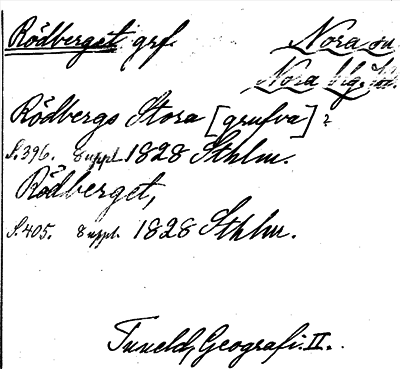 Rödberget grf. Nora sn.
Nora
Rödbergs Stora [grufva]?
S. 396. Suppl. 1828 Sthlm.
Rödberget,
S. 405. Suppl. 1828 Sthlm.
Tuneld, Geografi. II.